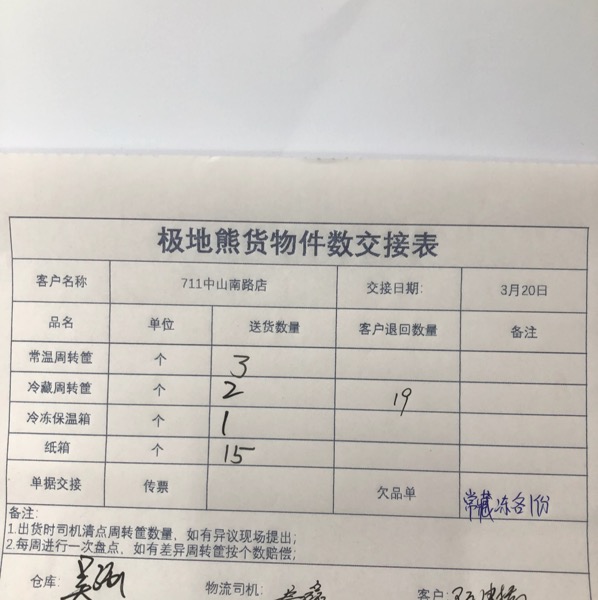 极地熊货物件数交接表
客户名称 711中山南路店 交接日期: 3月20日
品名 单位 送货数量 客户退回数量 备注
常温周转筐 个 3
冷藏周转筐 个 2 19
冷冻保温箱 个 1
纸箱 个 15
单据交接 传票 欠品单 常藏冻各1份
备注:
1.出货时司机清点周转筐数量，如有异议现场提出;
2.每周进行一次盘点，如有差异周转筐按个数赔偿;
仓库: 物流司机: 客户: